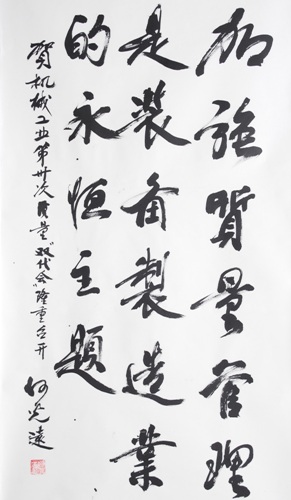 加强質量管理
是装备製造業
的永恒主题
贺机械工业第卅次质量"双代会"隆重召开
何光远